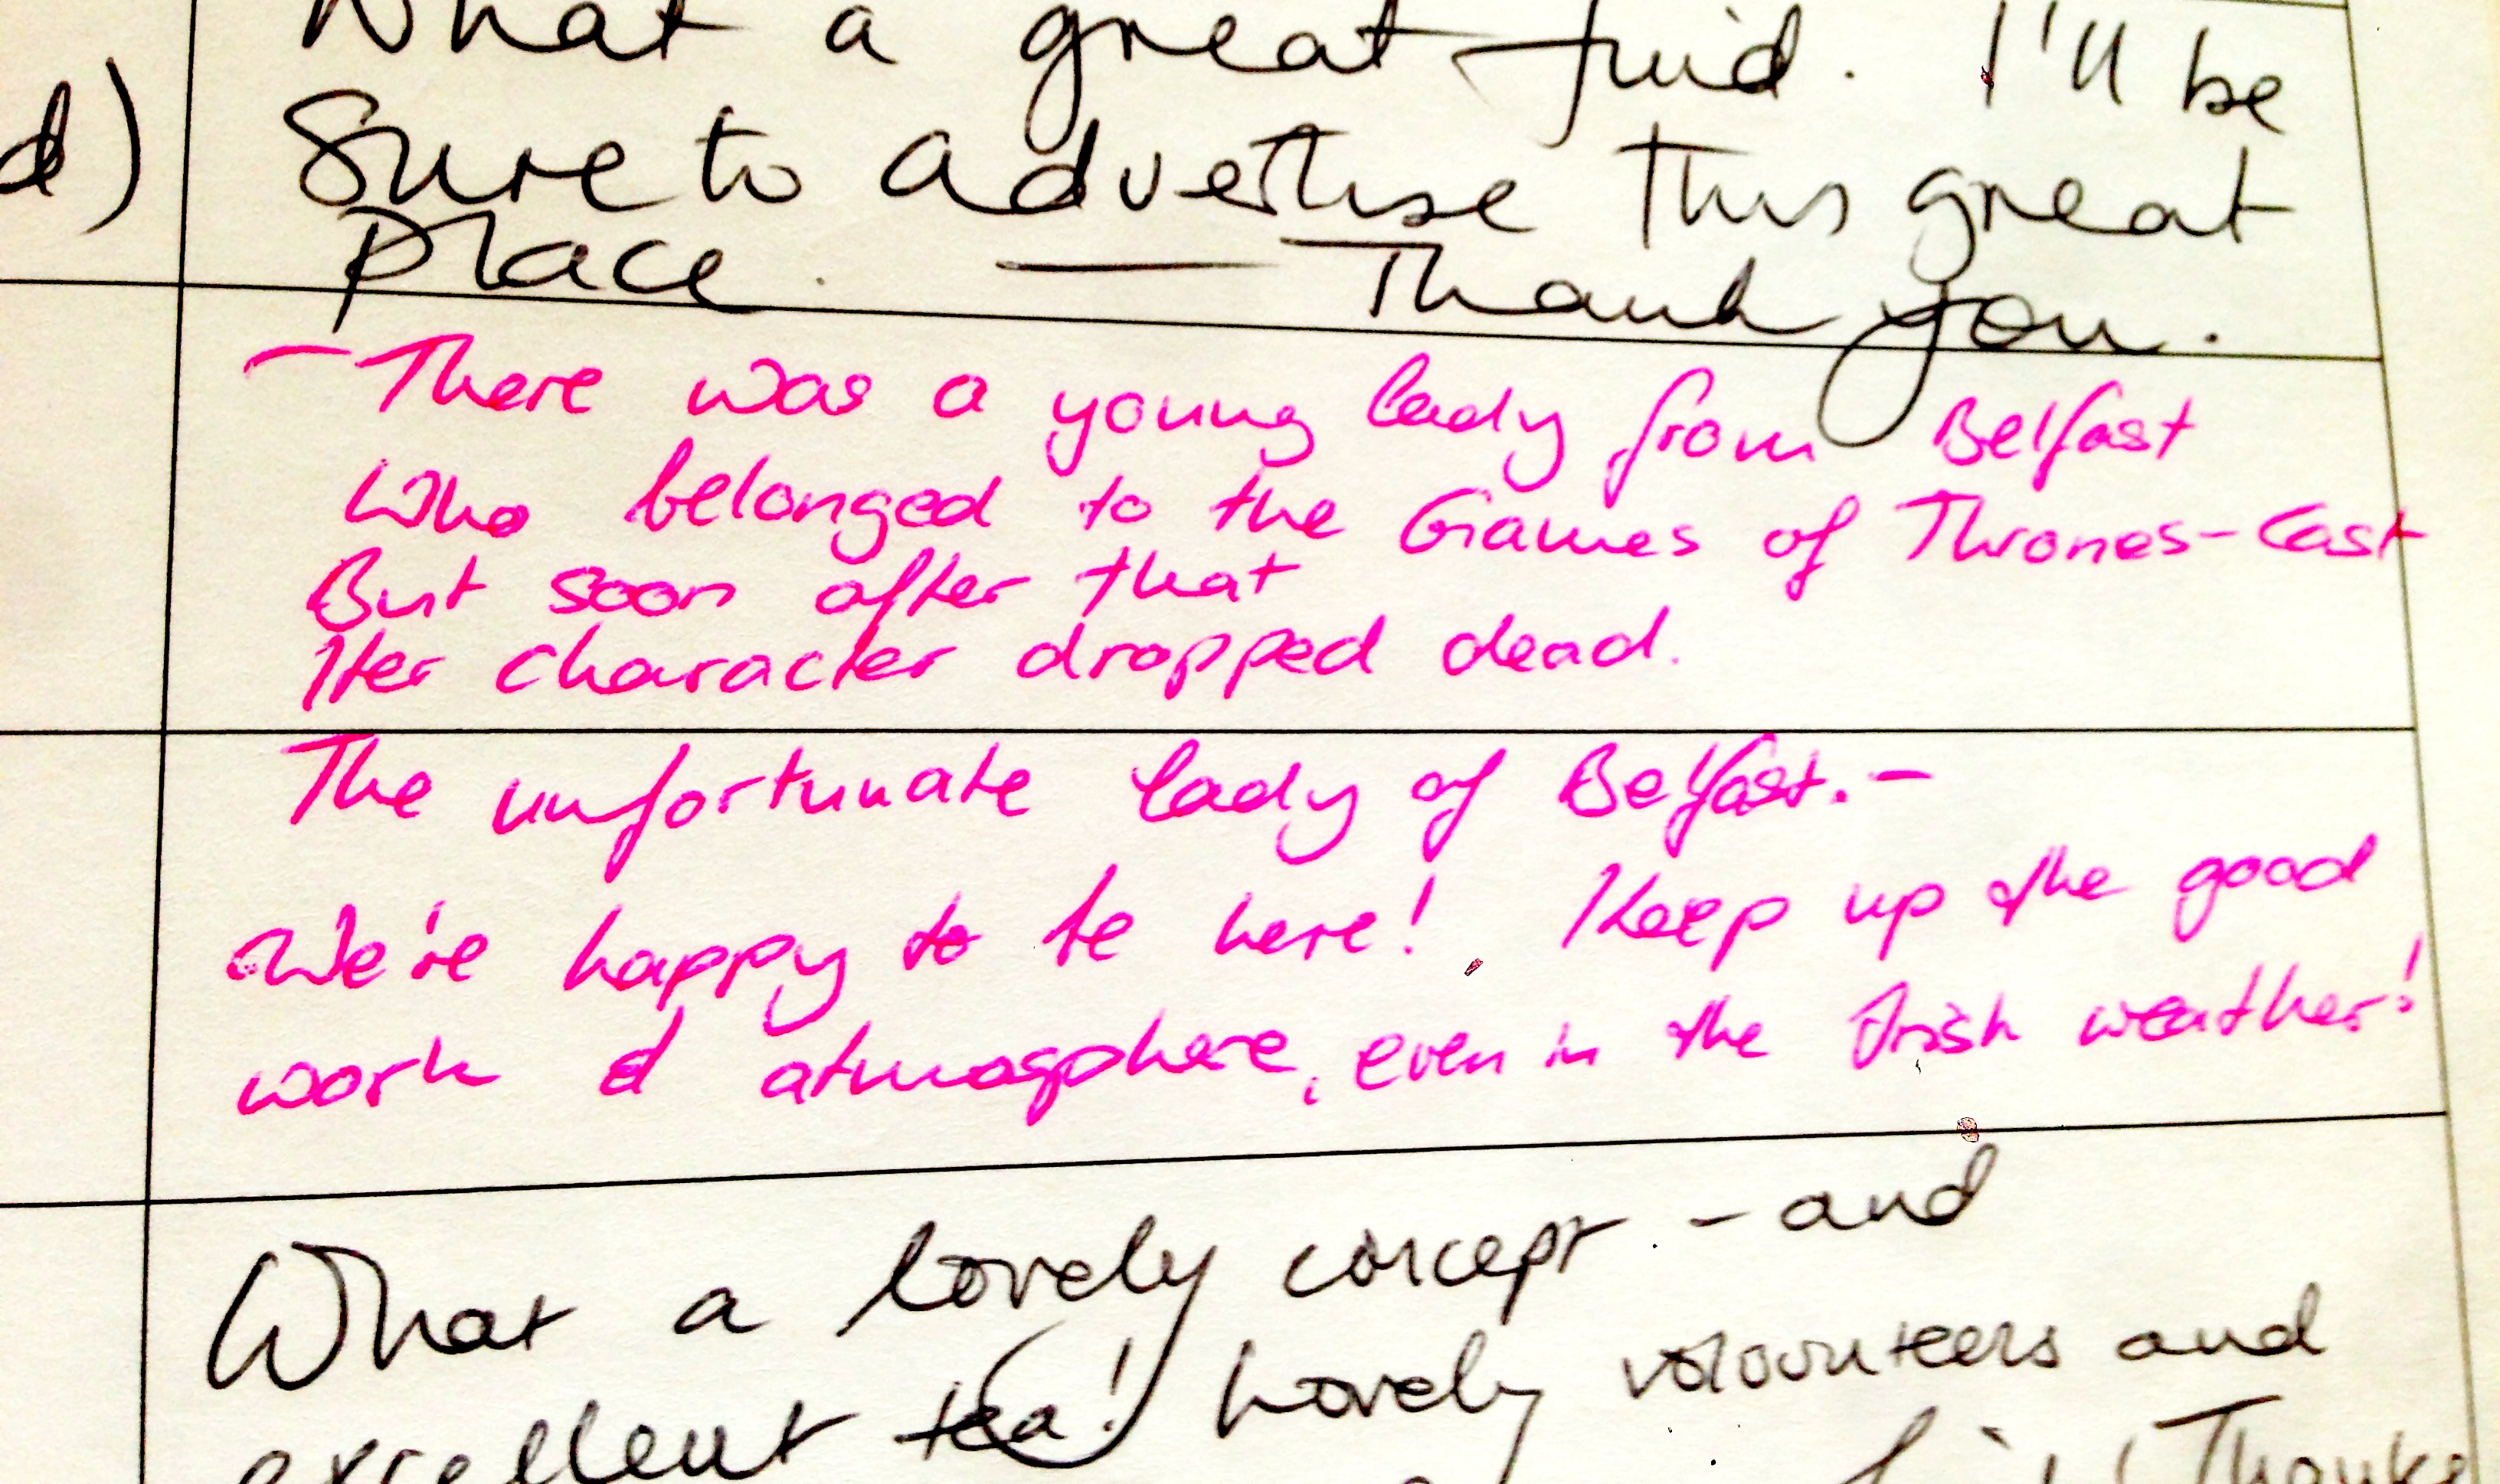 What a great find. I'll be
d) Sure to advertise this great
place. — Thank you.
– There was a young lady from Belfast
Who belonged to the Games of Thrones-Cast
But soon after that
Her character dropped dead.
The unfortunate lady of Belfast.–
We're happy to be here! Keep up the good
work & atmosphere, even in the Irish weather!
What a lovely concept - and
excellent tea! Lovely volounteers and
Thanks